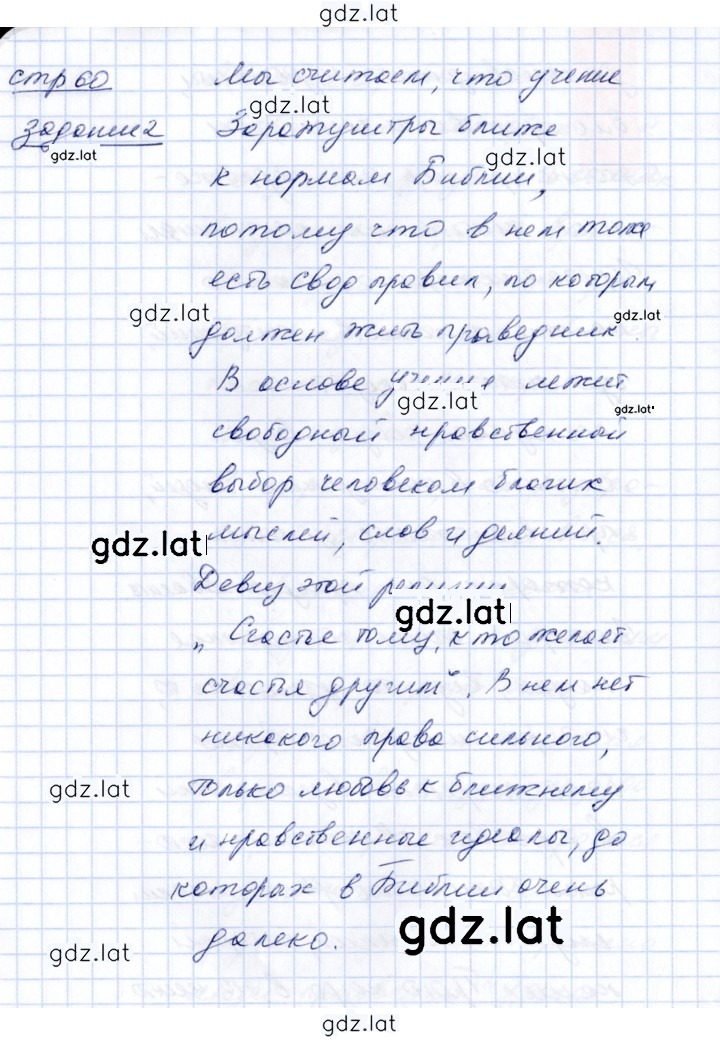 gdz.lat
стр 60 Мы считаем, что учение
gdz.lat
задание 2 Заратуштры ближе
gdz.lat gdz.lat
к нормам Библии,
потому что в нем тоже
есть свод правил, по которым
gdz.lat gdz.lat
должен жить праведник.
В основе учения лежит
gdz.lat gdz.lat
свободный нравственный
выбор человеком благих
мыслей, слов и деяний.
gdz.lat
Девиз этой
gdz.lat
„Счастье тому, кто желает
счастья другим". В нем нет
никакого права сильного,
gdz.lat только любовь к ближнему
и нравственные идеалы, до
которых в Библии очень
gdz.lat
далеко.
gdz.lat
gdz.lat